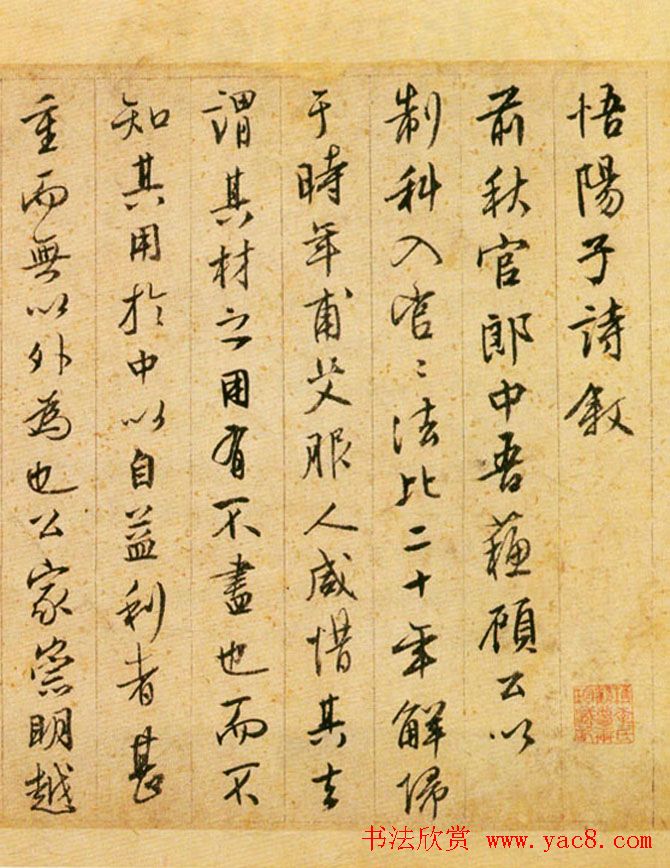 悟陽子詩敘
前秋官郎中吾蘇顧公以
制科入官〻法比二十年解歸
于時年甫艾服人咸惜其去
謂其材之用有不盡也而不
知其用於中以自益利者甚
重而無以外為也公家崇明越
书法欣赏 www.yac8.com